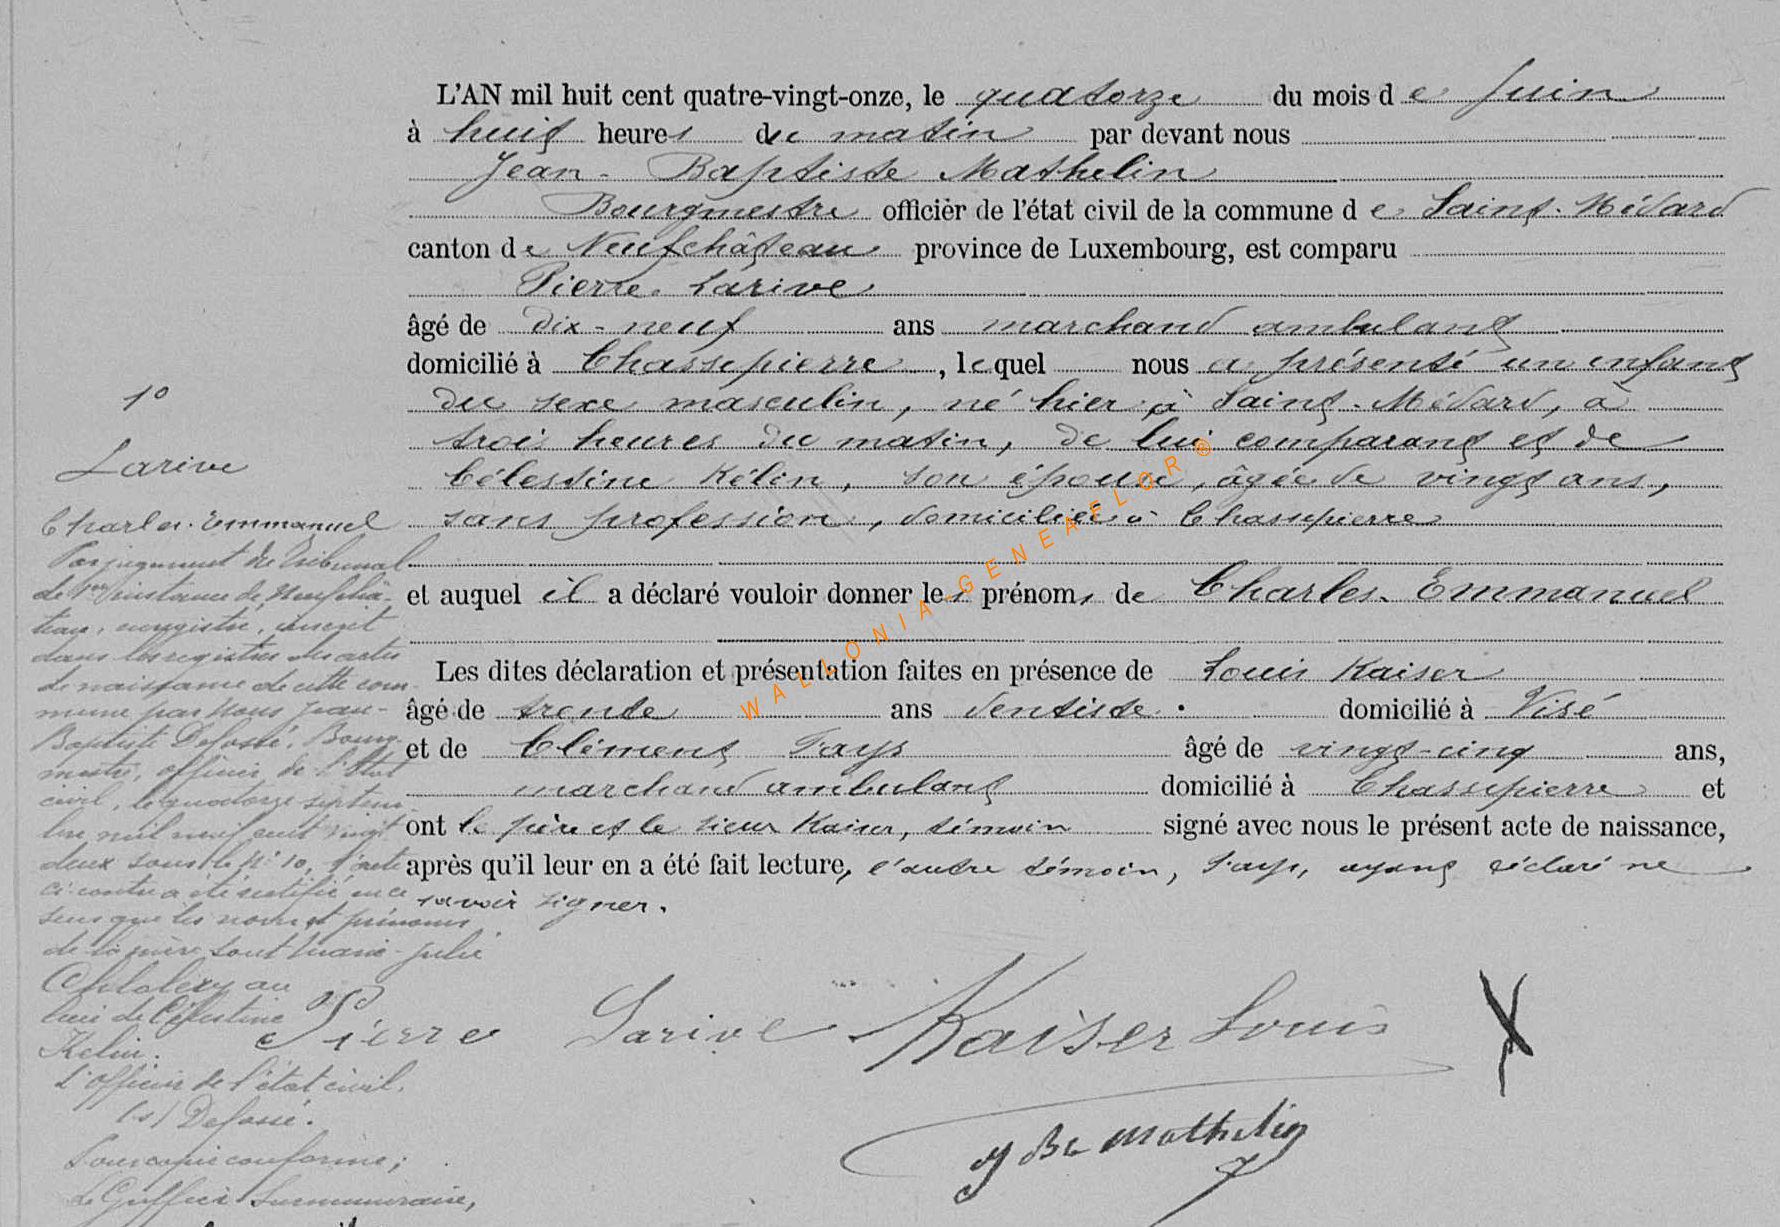 L'AN mil huit cent quatre-vingt-onze, le quatorze du mois de Juin
à huit heures du matin par devant nous
Jean-Baptiste Mathelin
Bourgmestre officier de l'état civil de la commune de Saint-Médard
canton de Neufchâteau province de Luxembourg, est comparu
Pierre Larive
âgé de dix-neuf ans marchand ambulant
domicilié à Chassepierre, lequel nous a présenté un enfant
du sexe masculin, né hier à Saint-Médard, à
trois heures du matin, de lui comparant et de
Célestine Kélin, son épouse, âgée de vingt ans,
sans profession, domiciliée à Chassepierre
et auquel il a déclaré vouloir donner les prénoms de Charles-Emmanuel
Les dites déclaration et présentation faites en présence de Louis Kaiser
âgé de trente ans dentiste domicilié à Visé
et de Clément Tays âgé de vingt-cinq ans,
marchand ambulant domicilié à Chassepierre et
ont le père et le sieur Kaiser, témoin signé avec nous le présent acte de naissance,
après qu'il leur en a été fait lecture, l'autre témoin, Tays, ayant déclaré ne
savoir signer.
1º
Larive
Charles-Emmanuel
Par jugement du Tribunal
de 1ère instance de Neufchâ-
teau, enregistré, inscrit
dans les registres des actes
de naissance de cette com-
mune par Nous Jean-
Baptiste Defossé, Bourg-
mestre, officier de l'état
civil, le quatorze septem-
bre mil neuf cent vingt
deux sous le Nº 10, l'acte
ci-contre a été rectifié en ce
sens que les nom et prénoms
de la mère sont Marie-Julie
au
lieu de Célestine
Kelin.
L'officier de l'état civil.
(s) Defossé.
Pour copie conforme;
Le Greffier Surnuméraire,
Pierre Larive Kaiser Louis
J Bte Mathelin
WALLONIA-GENEAFLOR ®